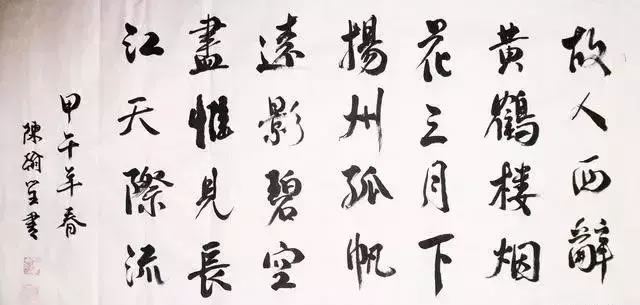 故人西辭
黄鶴楼烟
花三月下
揚州孤帆
遠影碧空
盡惟見長
江天際流
甲午年春
陳
書